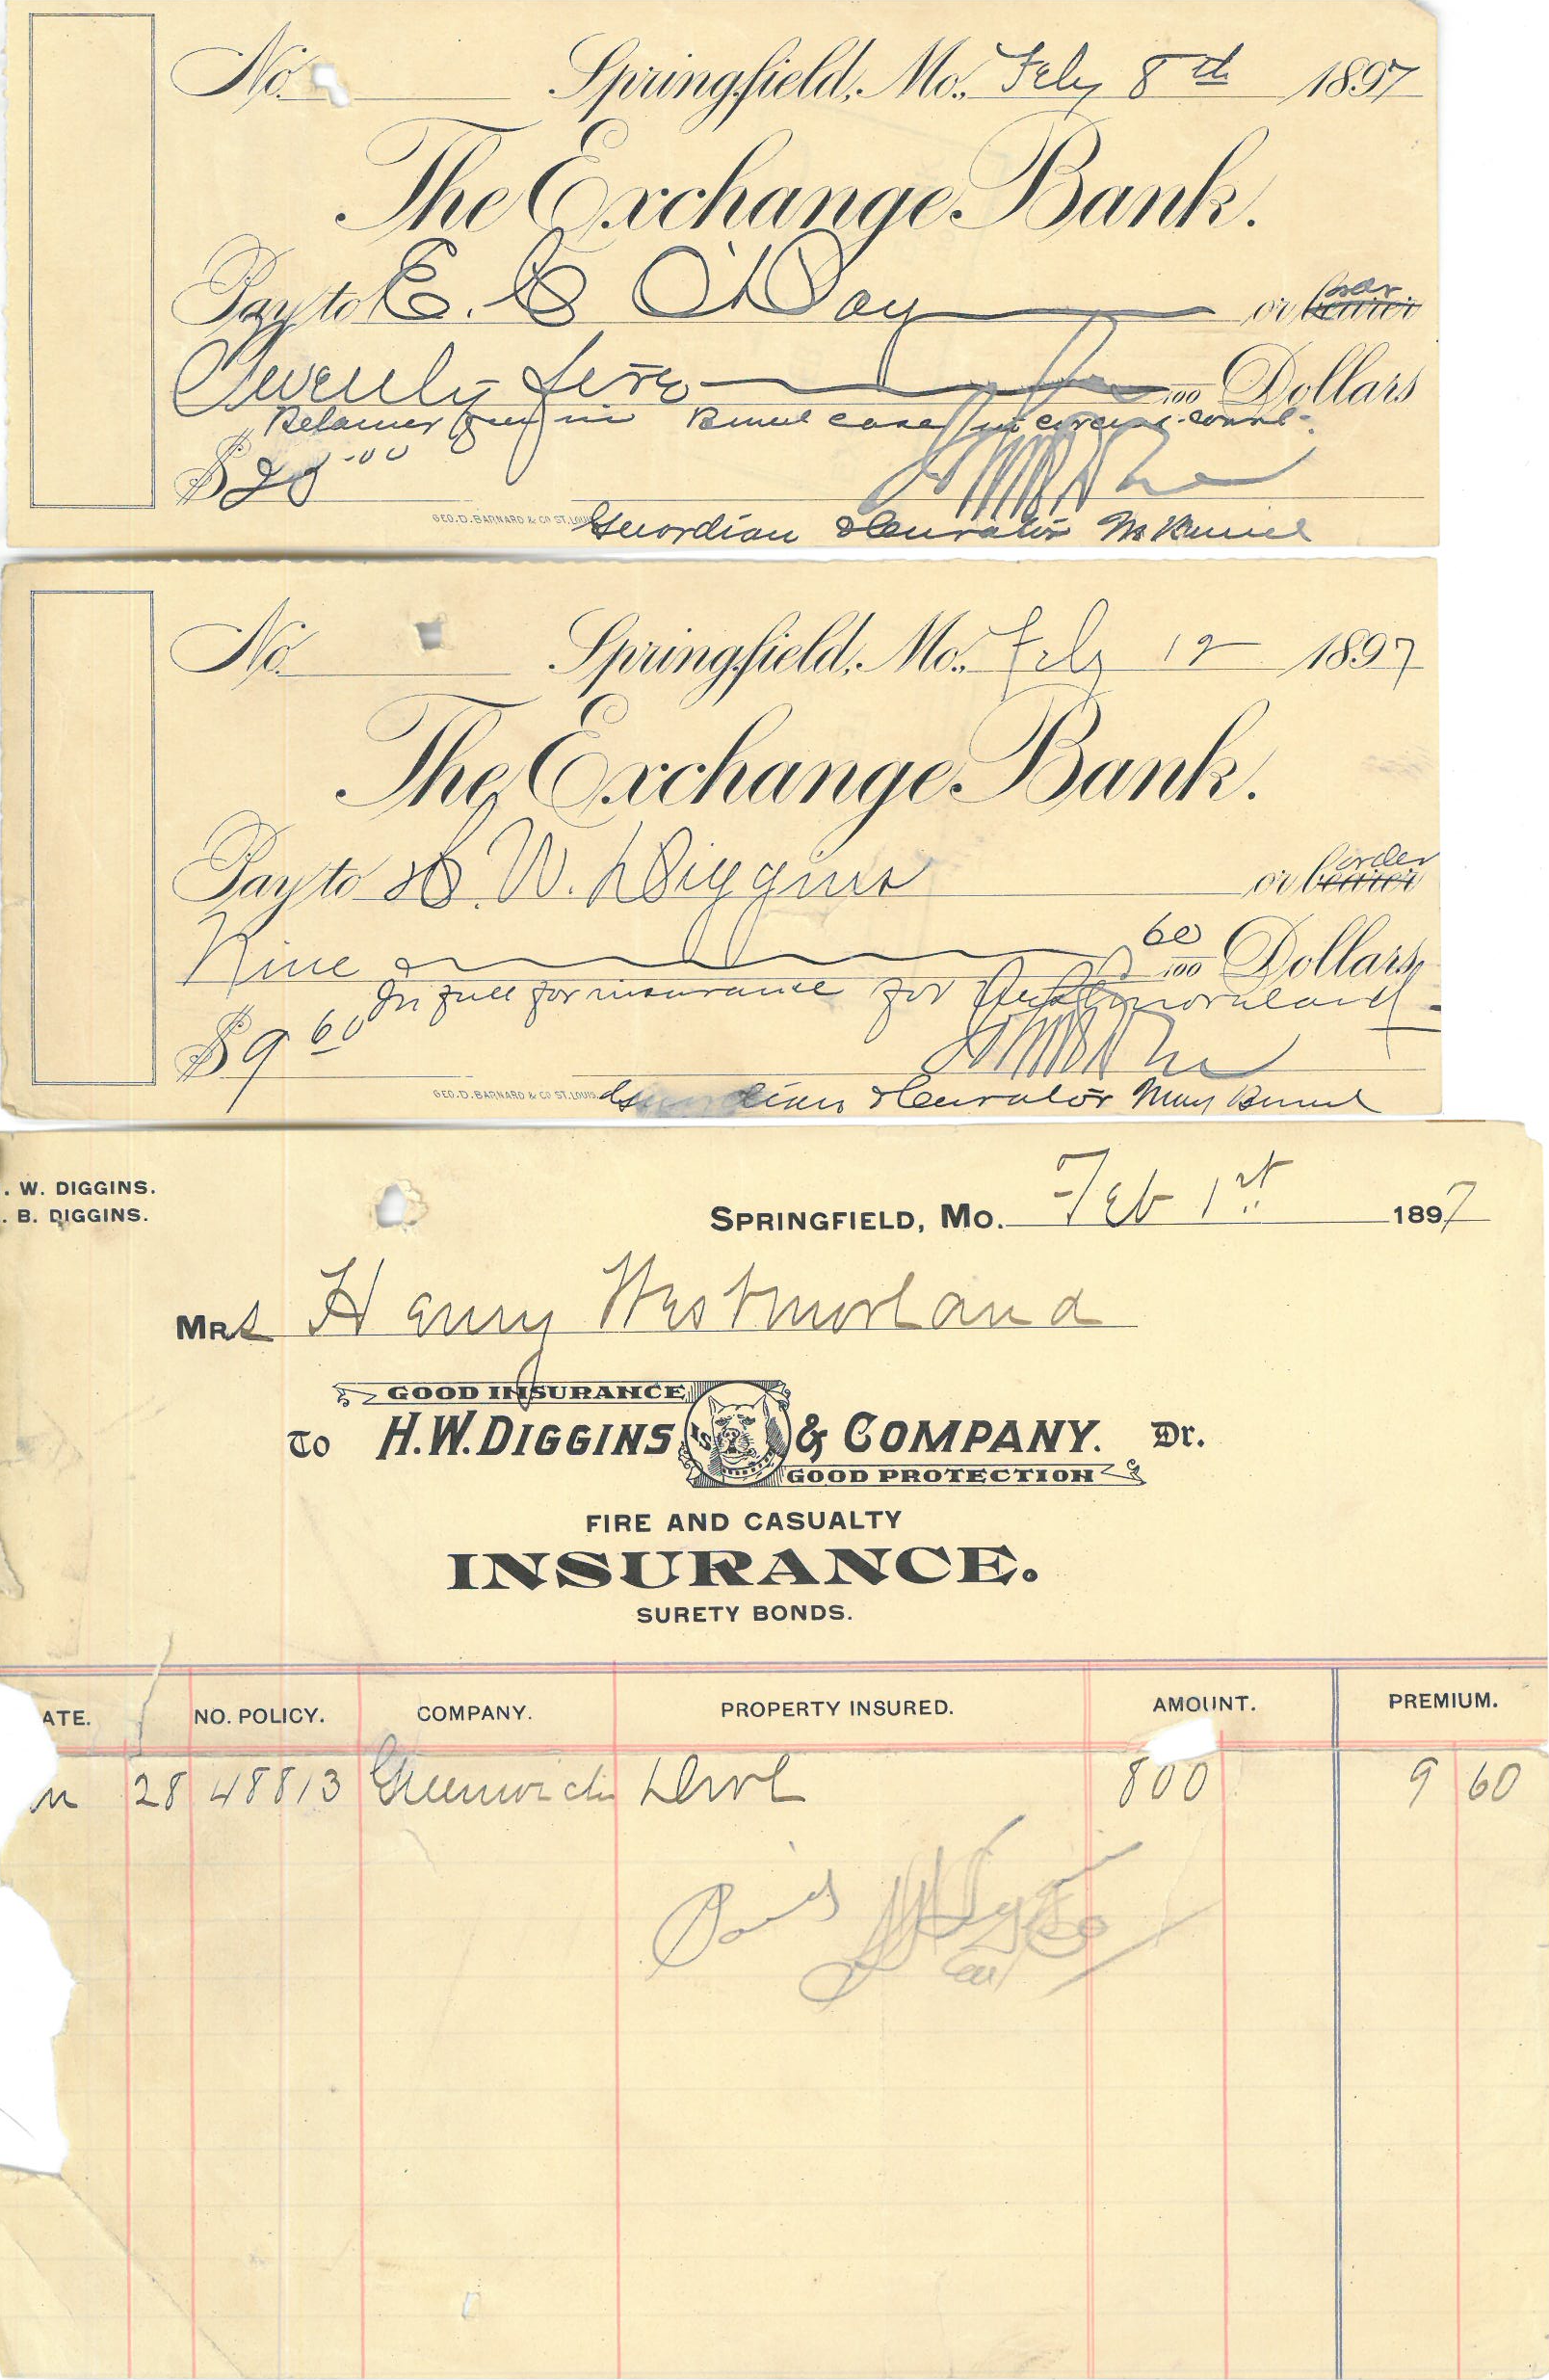 No. Springfield, Mo., Feby 8th 1897
The Exchange Bank.
Pay to E. C. O'Day or bearer
Twenty five /100 Dollars
Retainer fee in case in circuit court.
$25.00
GEO. D. BARNARD & CO ST. LOUIS
Guardian & Curator
No. Springfield, Mo., Feby 12 1897
The Exchange Bank.
order
Pay to H. W. Diggins or bearer
Nine 60/100 Dollars
In full for insurance for Westmorland
$9.60
GEO. D. BARNARD & CO ST. LOUIS.
Guardian & Curator May
. W. DIGGINS.
. B. DIGGINS.
SPRINGFIELD, MO. Feb 1st 1897
MRs Henry Westmorland
GOOD INSURANCE
To H. W. DIGGINS & COMPANY. Dr.
GOOD PROTECTION
FIRE AND CASUALTY
INSURANCE.
SURETY BONDS.
ATE. NO. POLICY. COMPANY. PROPERTY INSURED. AMOUNT. PREMIUM.
28 48813 Greenwich Dwl 800 9 60
Paid